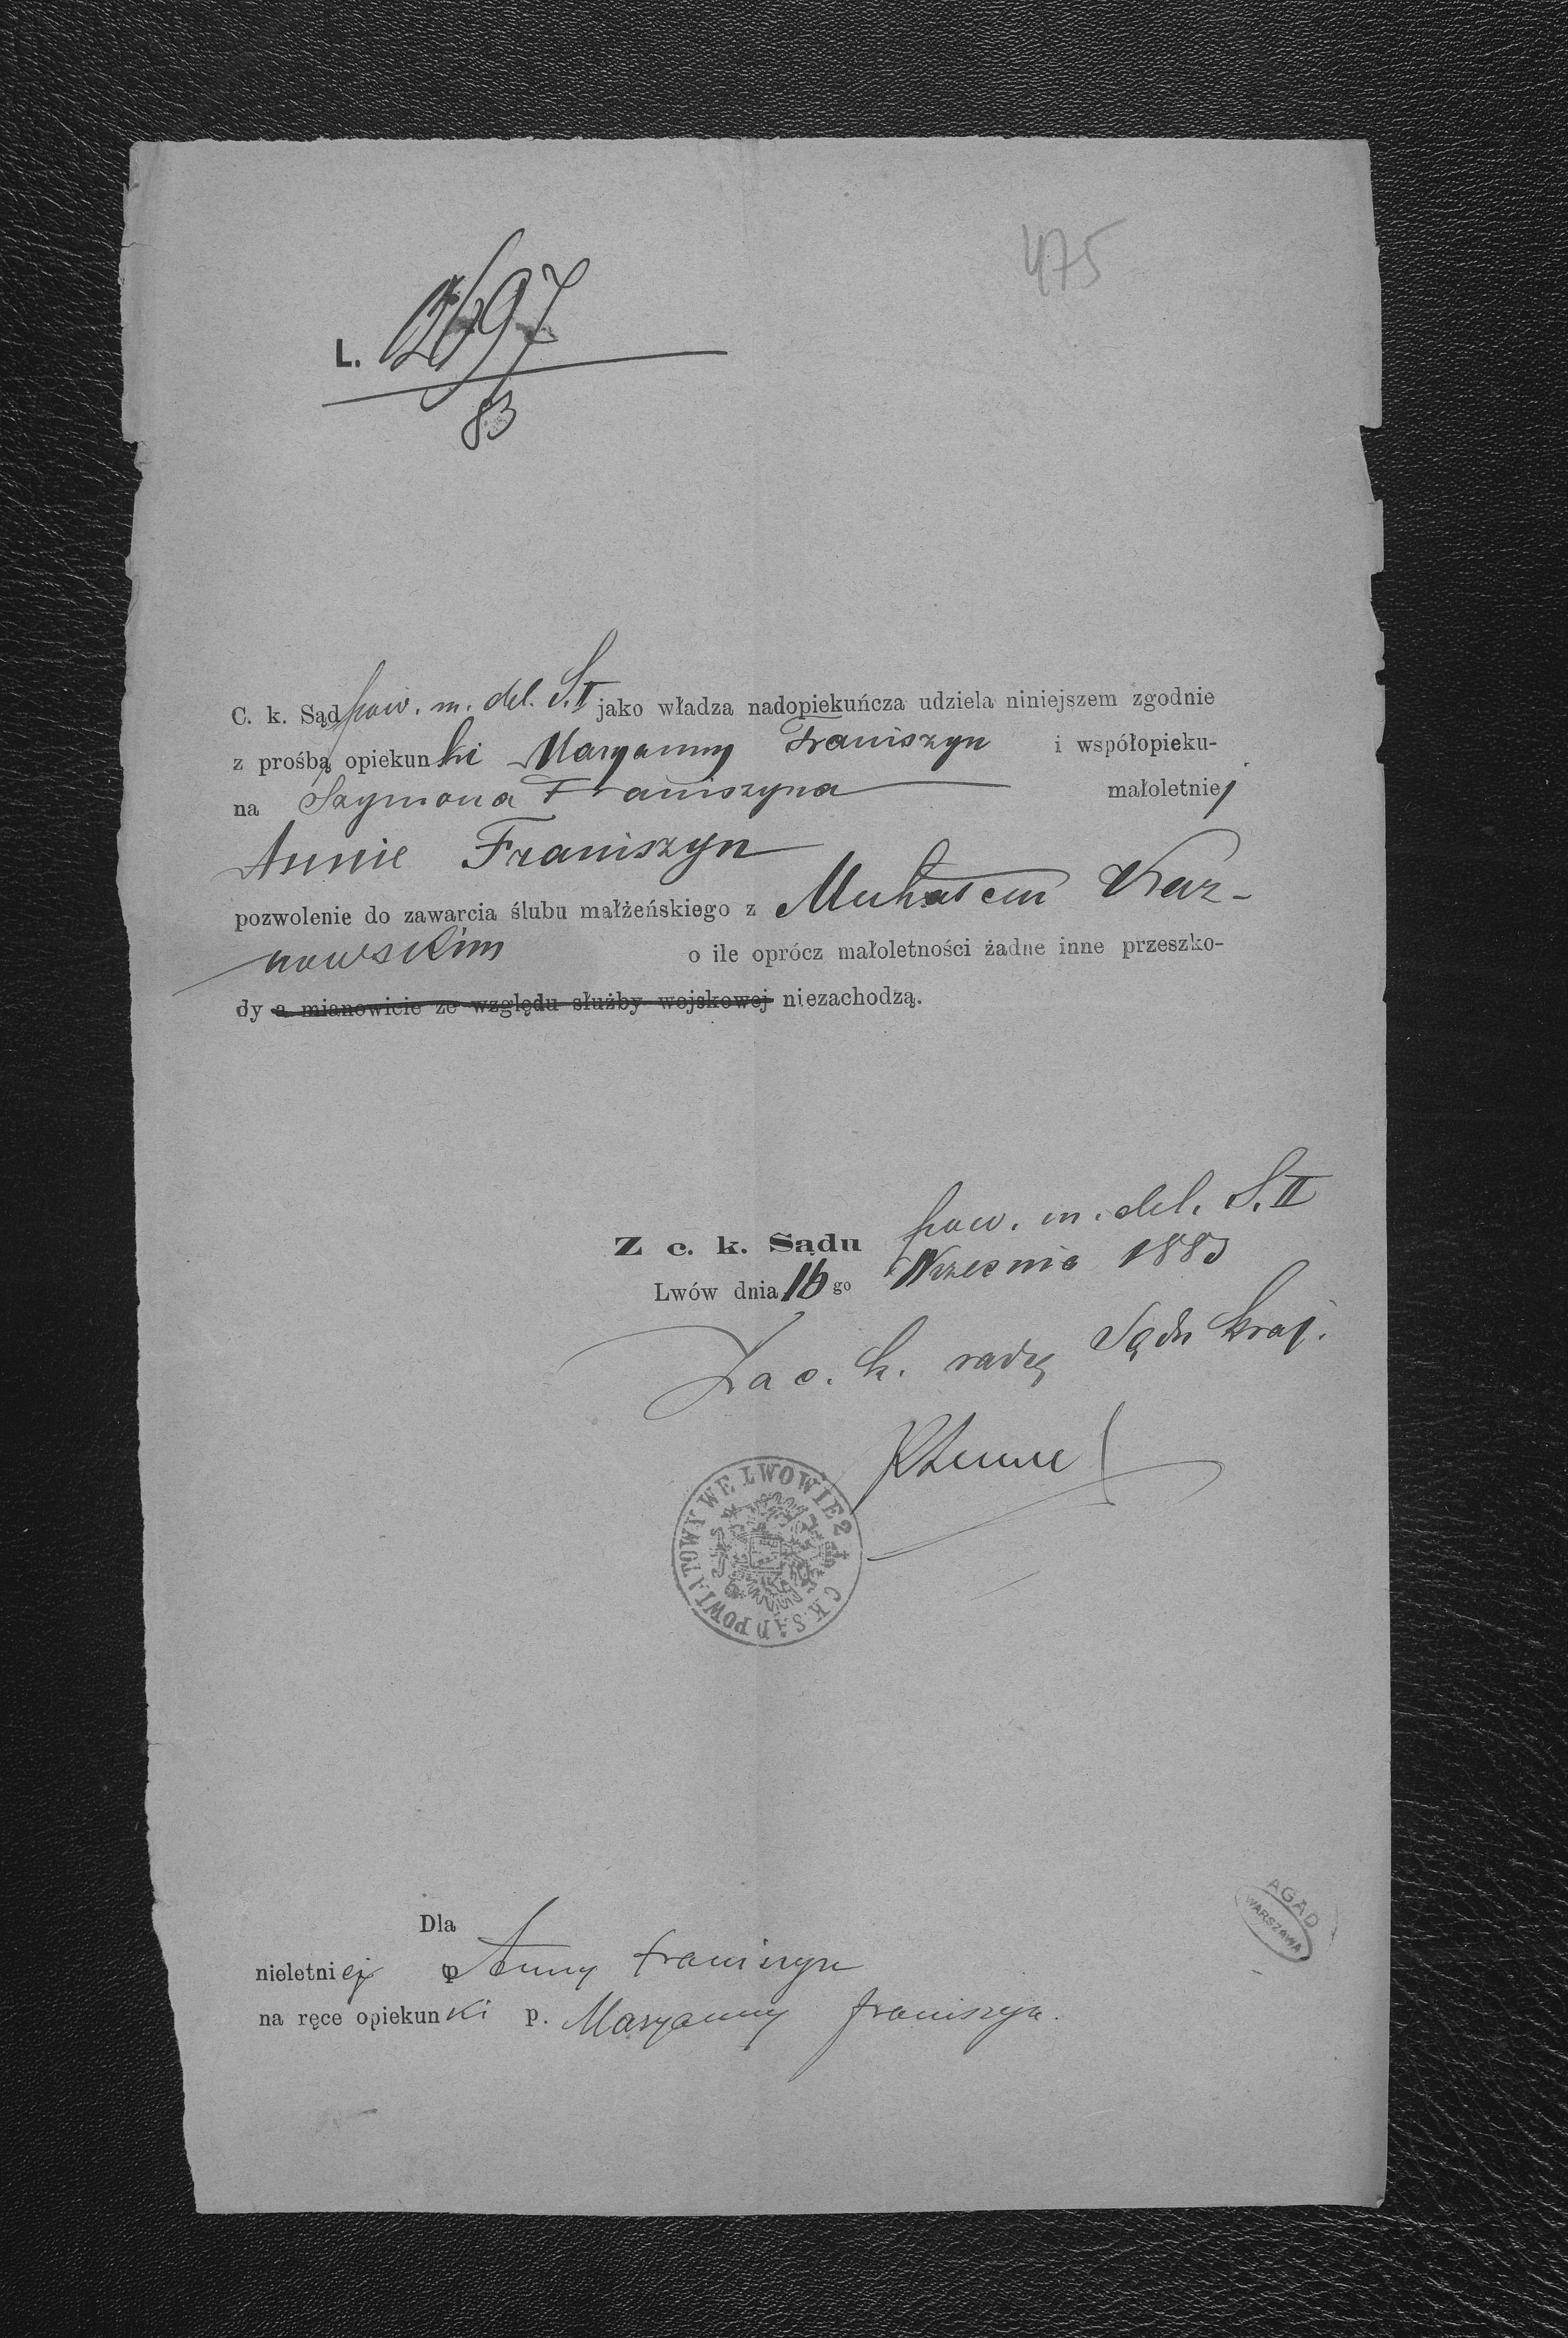 475
L. 12697
83
C. k. Sąd pow. m. del. S. II jako władza nadopiekuńcza udziela niniejszem zgodnie
z prośbą opiekunki Maryanny Franiszyn i współopieku-
na Szymona Franiszyna małoletniej
Annie Franiszyn
pozwolenie do zawarcia ślubu małżeńskiego z Michałem
nowskim o ile oprócz małoletności żadne inne przeszko-
dy a mianowicie ze względu służby wojskowej niezachodzą.
Z c. k. Sądu pow. m. del. S. II
Lwów dnia 16go Września 1883
Za c. k. radcę Sądu kraj.
C. K. SĄD POWIATOWY WE LWOWIE 2
Dla
nieletniej p Anny Franiszyn
na ręce opiekunki p. Maryanny Franiszyn.
AGAD
WARSZAWA